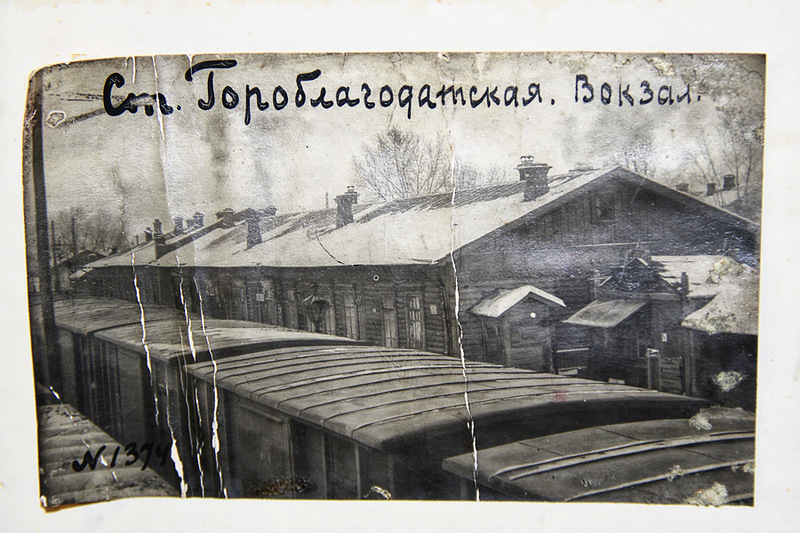 Ст. Гороблагодатская. Вокзал.
N 1374